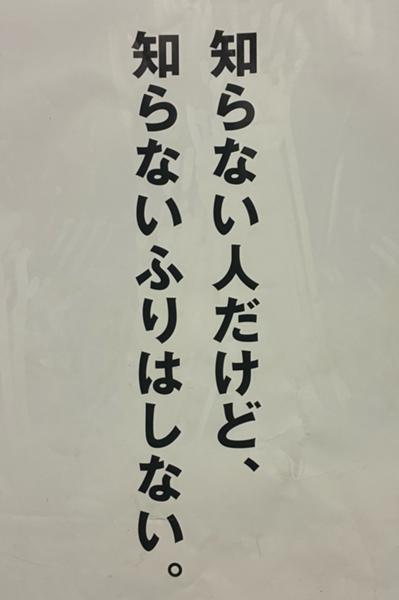 知らない人だけど、
知らないふりはしない。